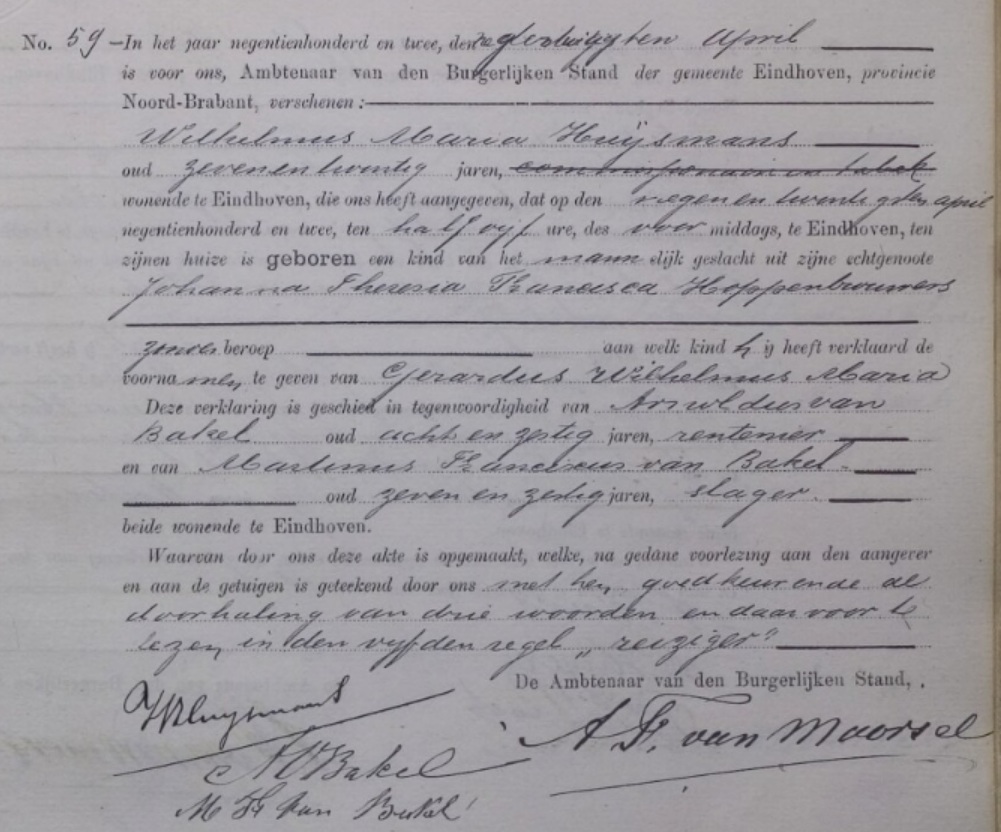 No. 59 – In het jaar negentienhonderd en twee, den negenentwintigsten April
is voor ons, Ambtenaar van den Burgerlijken Stand der gemeente Eindhoven, provincie
Noord-Brabant, verschenen:
Wilhelmus Maria Huijsmans
oud zevenentwintig jaren, commissionair in tabak
wonende te Eindhoven, die ons heeft aangegeven, dat op den negen en twintigsten april
negentienhonderd en twee, ten half vijf ure, des voor middags, te Eindhoven, ten
zijnen huize is geboren een kind van het mannelijk geslacht uit zijne echtgenoote
Johanna Theresia Francisca Hoppenbrouwers
zonder beroep aan welk kind hij heeft verklaard de
voornamen, te geven van Gerardus Wilhelmus Maria
Deze verklaring is geschied in tegenwoordigheid van Arnoldus van
Bakel oud acht en zestig jaren, rentenier
en van Martinus Franciscus van Bakel
oud zeven en zestig jaren, slager.
beide wonende te Eindhoven.
Waarvan door ons deze akte is opgemaakt, welke, na gedane voorlezing aan den aangever
en aan de getuigen is geteekend door ons met hen, goedkeurende de
doorhaling van drie woorden en daarvoor te
lezen in den vijfden regel „reiziger"
De Ambtenaar van den Burgerlijken Stand,
WMHuysmans
A. F. van Moorsel
AVBakel
M Fr van Bakel